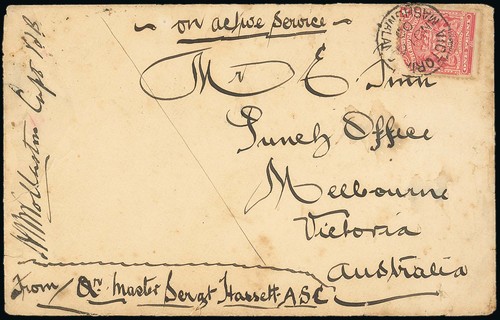 ~ on active Service ~
Mr E. Finn
Punch Office
Melbourne
Victoria
Australia
From / Qr. Master Sergt Hassett. ASC
Wollaston Capt
VICTORIA
MASHONALAND